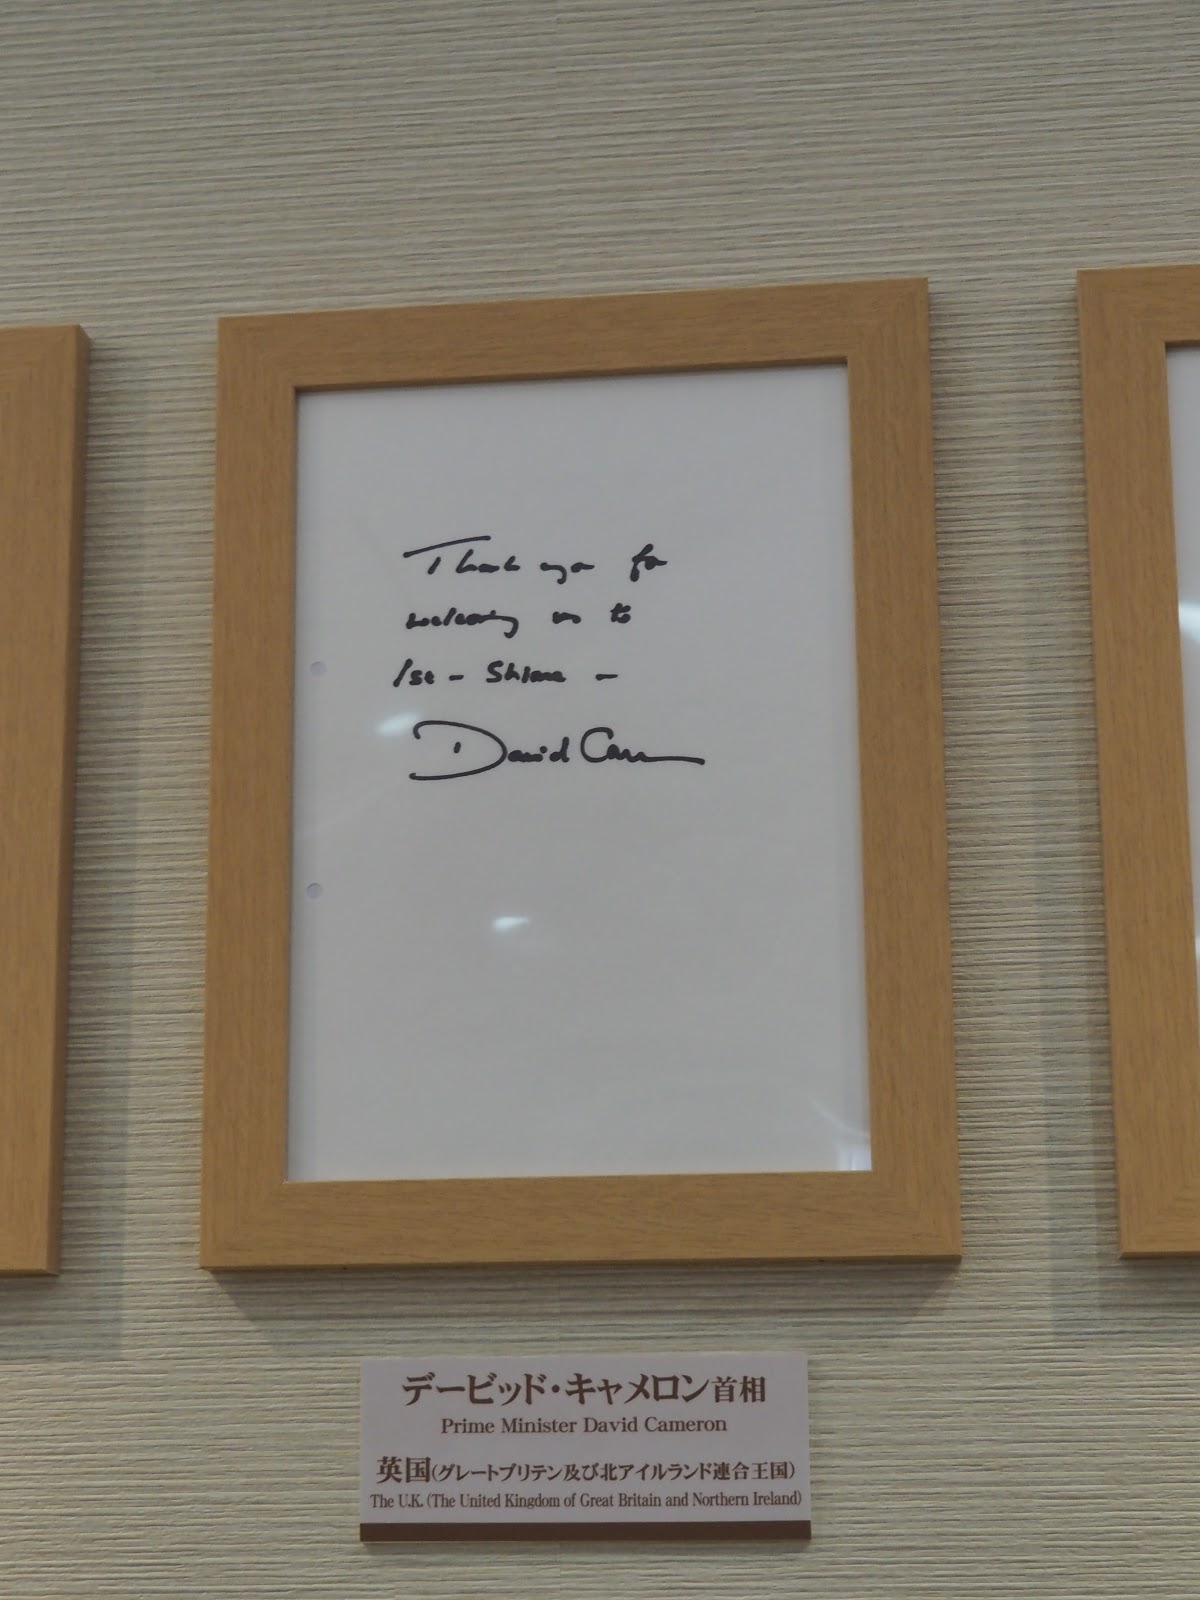 Thank you for
welcoming us to
Ise - Shima -
David Cameron
デービッド・キャメロン首相
Prime Minister David Cameron
英国(グレートブリテン及び北アイルランド連合王国)
The U.K. (The United Kingdom of Great Britain and Northern Ireland)